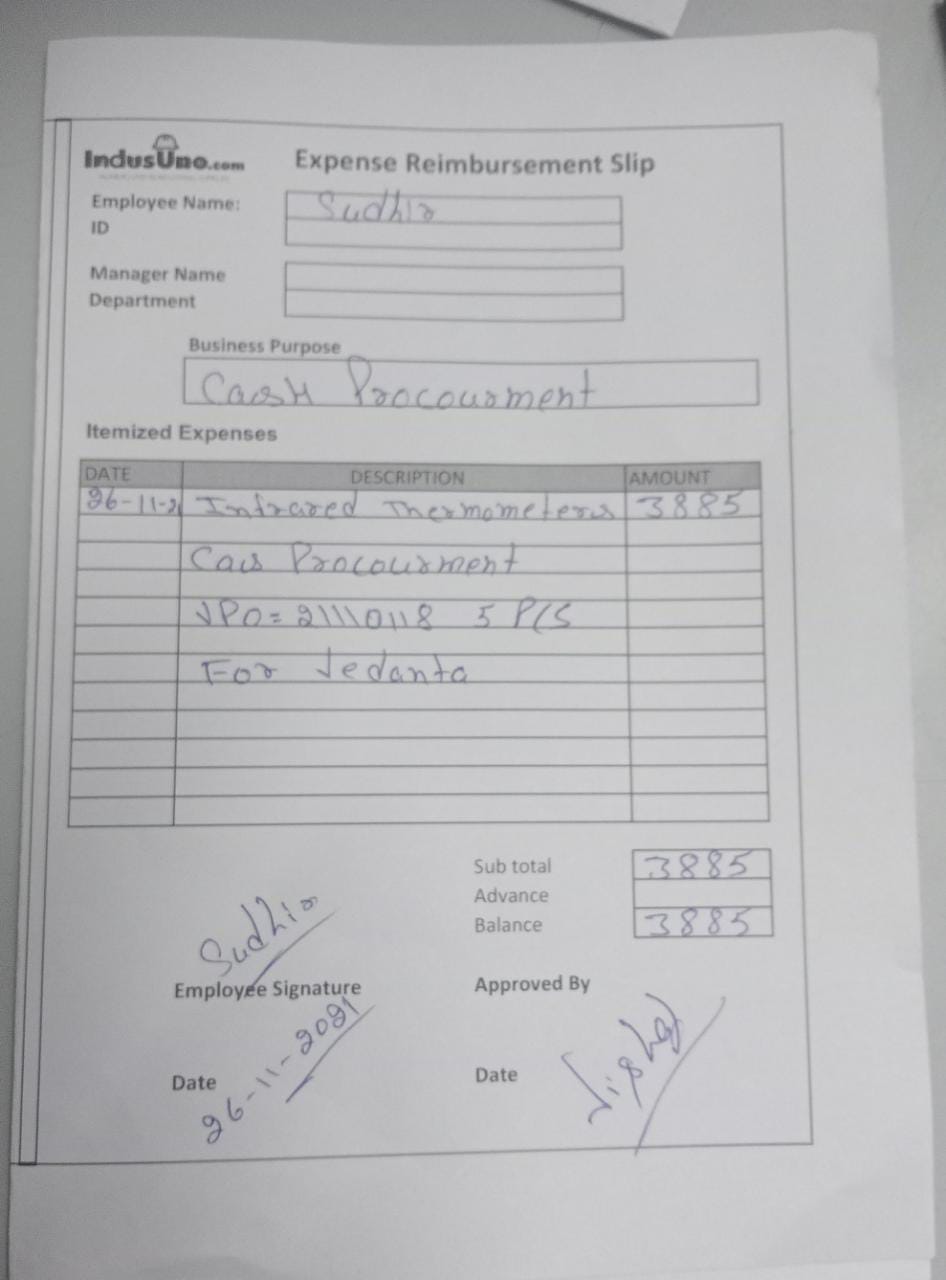 IndusUno.com
Expense Reimbursement Slip
Employee Name: Sudhir
ID
Manager Name
Department
Business Purpose
Cash Procourment
Itemized Expenses
DATE DESCRIPTION AMOUNT
26-11-2 Infrared Thermometers 3885
Cas Procourment
VPO=21110118 5 PCS
For Vedanta
Sub total 3885
Advance
Balance 3885
Sudhir
Employee Signature
Approved By
Date 26-11-2021
Date